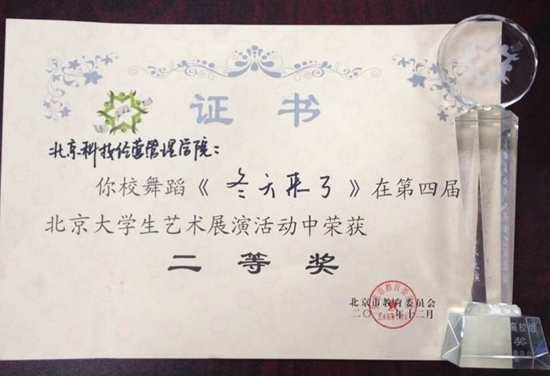 证书
北京科技经营管理学院：
你校舞蹈《冬天来了》在第四届
北京大学生艺术展演活动中荣获
二等奖
北京市教育委员会
十二月
高校组
奖